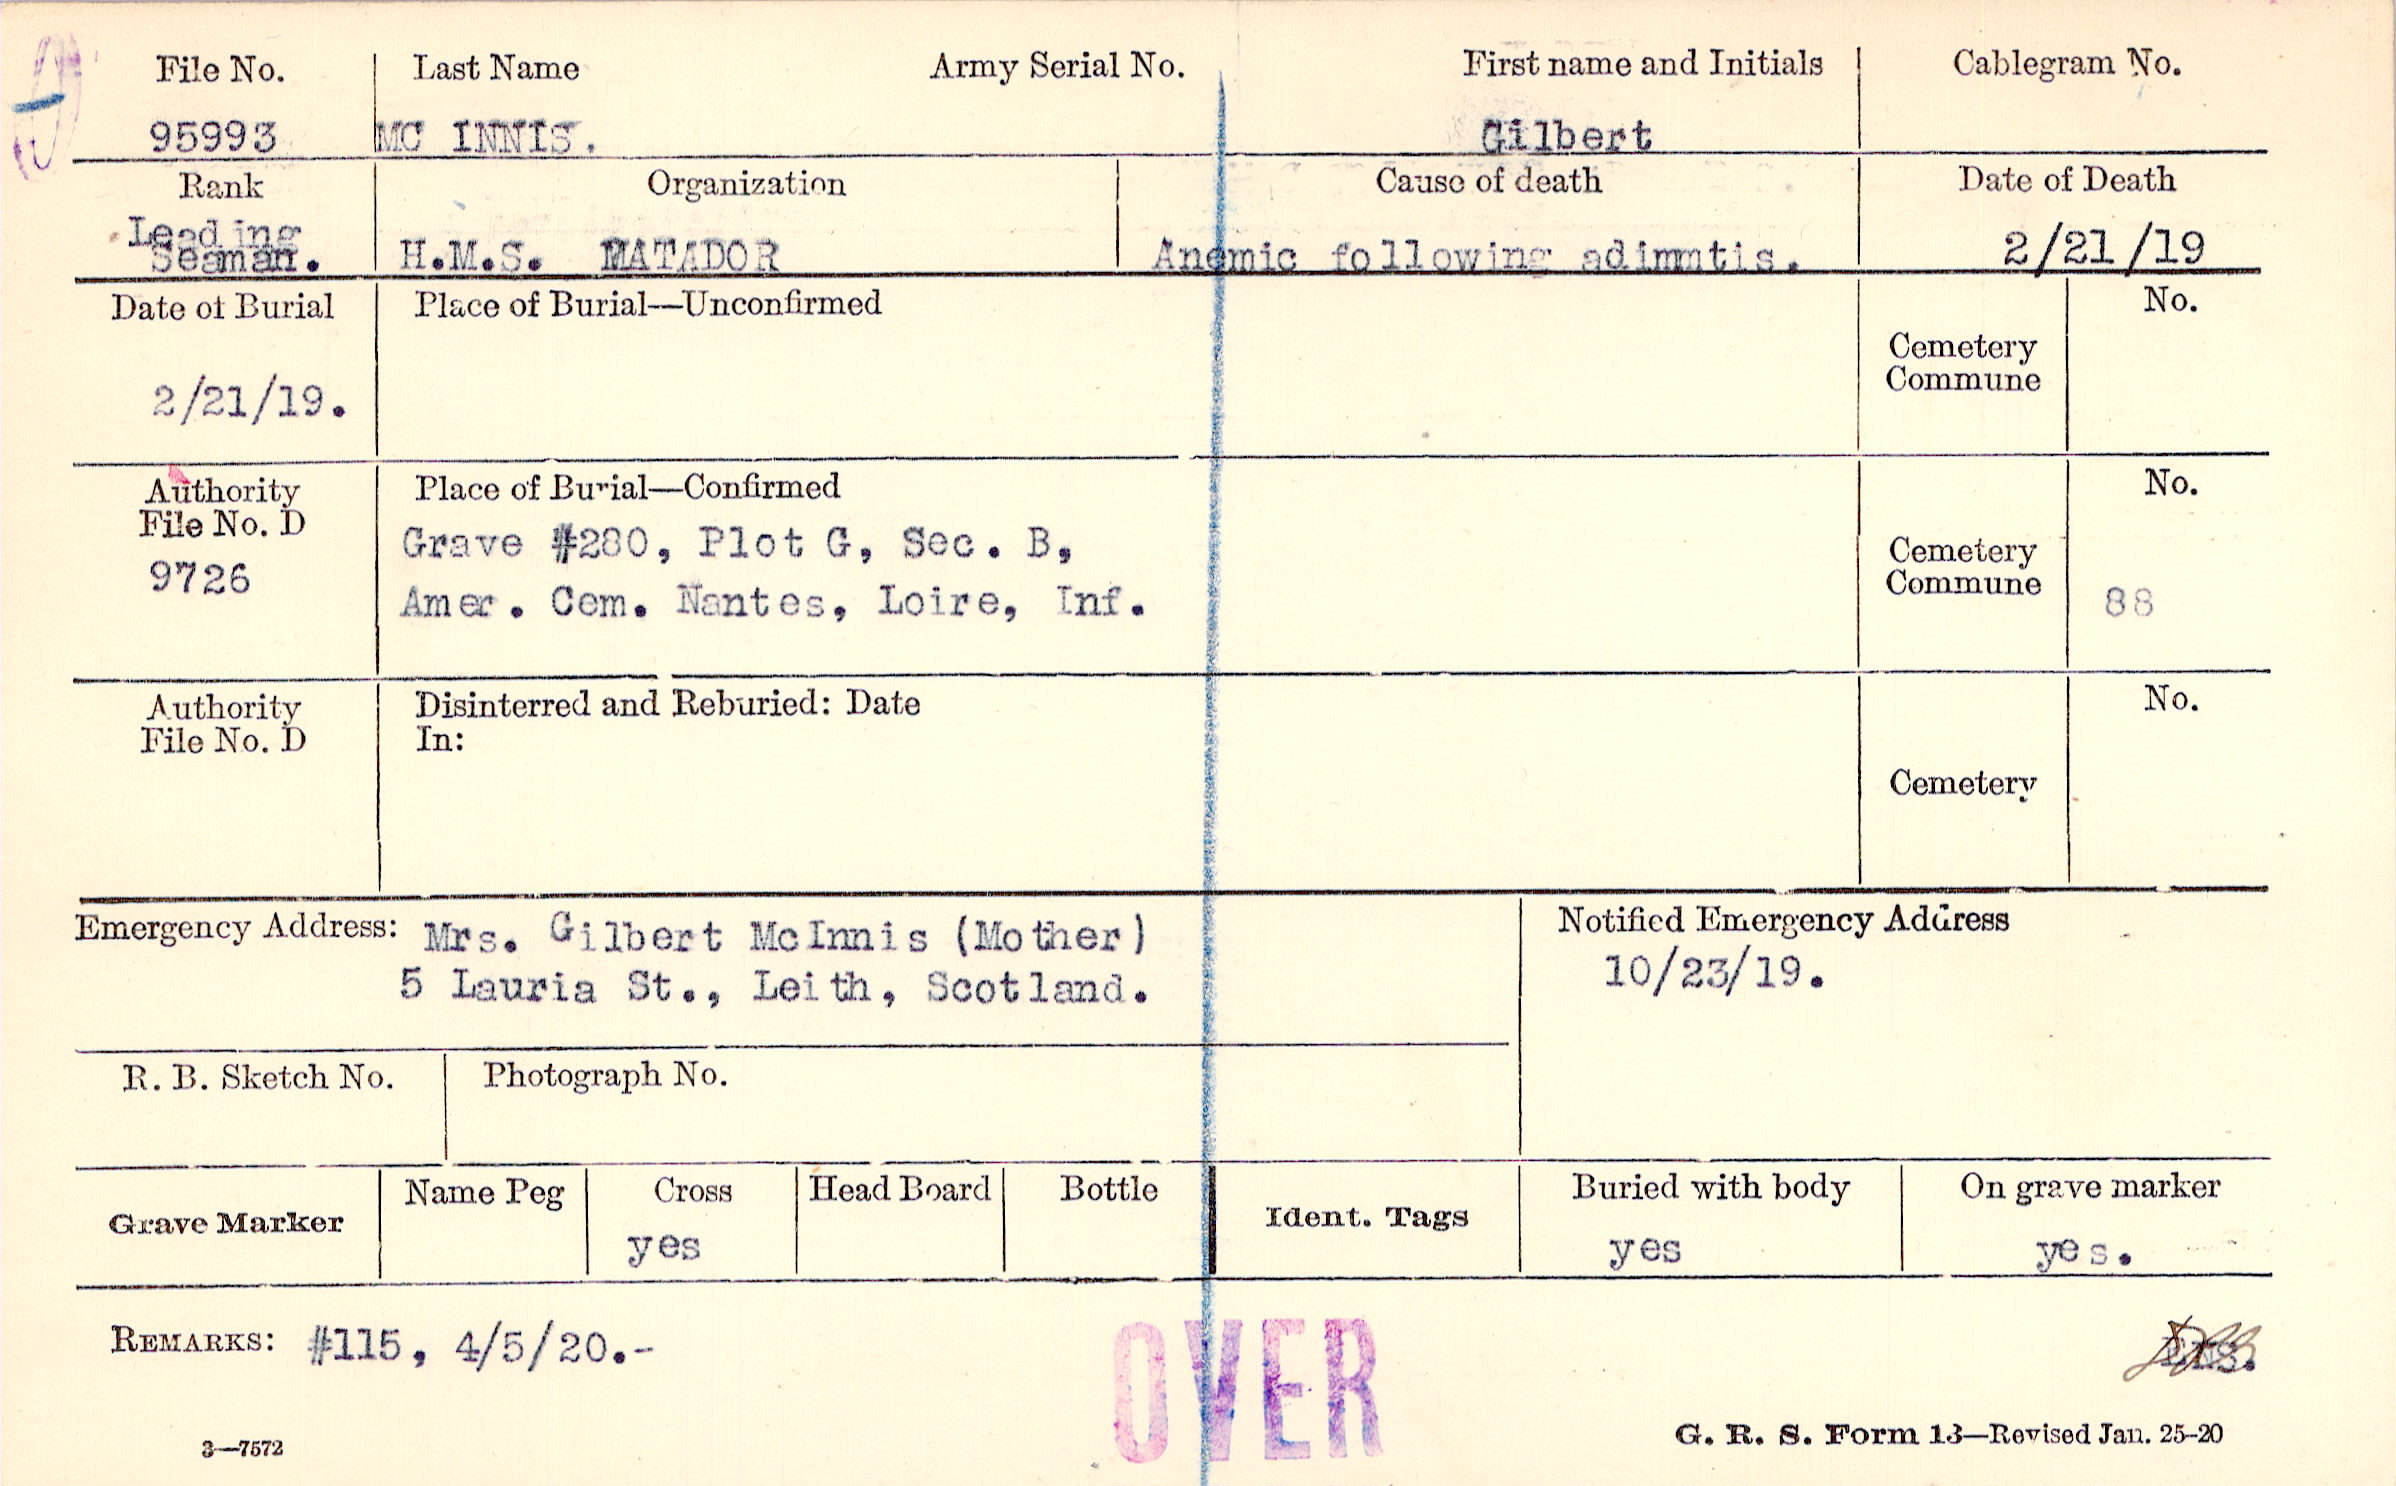 File No. Last Name Army Serial No. First name and Initials Cablegram No.
95993 MC INNIS. Gilbert
Rank Organization Cause of death Date of Death
Leading
Seaman. H.M.S. MATADOR Anemic following adimmtis. 2/21/19
Date of Burial Place of Burial—Unconfirmed No.
Cemetery
Commune
2/21/19.
Authority Place of Burial—Confirmed No.
File No. D Grave #280, Plot G, Sec. B, Cemetery
9726 Amer. Cem. Nantes, Loire, Inf. Commune 88
Authority Disinterred and Reburied: Date No.
File No. D In:
Cemetery
Emergency Address: Mrs. Gilbert McInnis (Mother) Notified Emergency Address
5 Lauria St., Leith, Scotland. 10/23/19.
R. B. Sketch No. Photograph No.
Name Peg Cross Head Board Bottle Buried with body On grave marker
Grave Marker yes Ident. Tags yes yes.
REMARKS: #115, 4/5/20.-
OVER
3—7572 G. R. S. Form 13—Revised Jan. 25-20